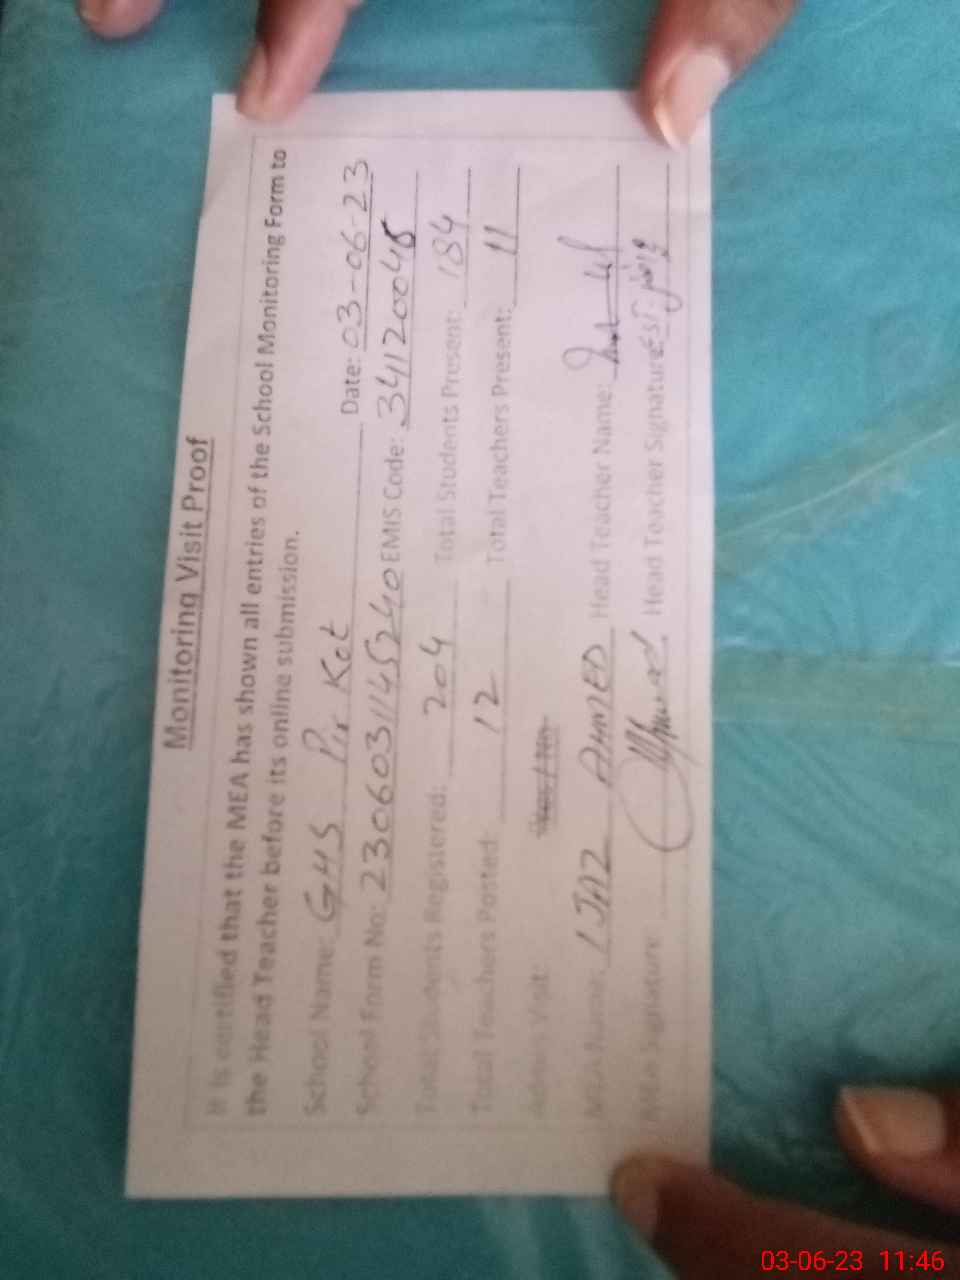 Monitoring Visit Proof
It is certified that the MEA has shown all entries of the School Monitoring Form to
the Head Teacher before its online submission.
School Name: GHS Pir Kot Date: 03-06-23
School Form No: 2306031145240 EMIS Code: 34120048
Total Students Registered: 204 Total Students Present: 184
Total Teachers Posted: 12 Total Teachers Present: 11
Admin Visit:
MEA Name: IJAZ AHMED Head Teacher Name:
MEA Signature: Head Teacher Signature:
03-06-23 11:46